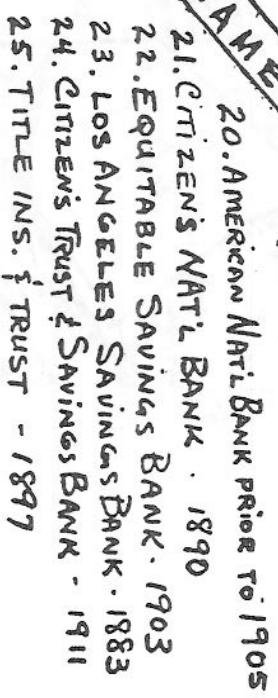 AME
20. AMERICAN NAT'L BANK PRIOR TO 1905
21. CITIZEN'S NAT'L BANK . 1890
22. EQUITABLE SAVINGS BANK . 1903
23. LOS ANGELES SAVINGS BANK . 1883
24. CITIZEN'S TRUST & SAVINGS BANK - 1911
25. TITLE INS. & TRUST - 1897